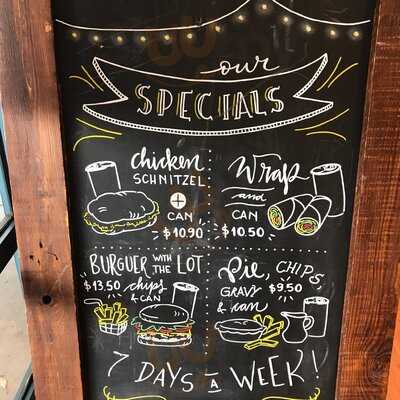 our
SPECIALS
chicken
SCHNITZEL
+
CAN,
$10.90
Wrap
and
CAN
$10.50
BURGUER WITH THE LOT
$13.50 chips
& CAN
Pie, CHIPS,
GRAVY $9.50
& can
7 DAYS A WEEK!